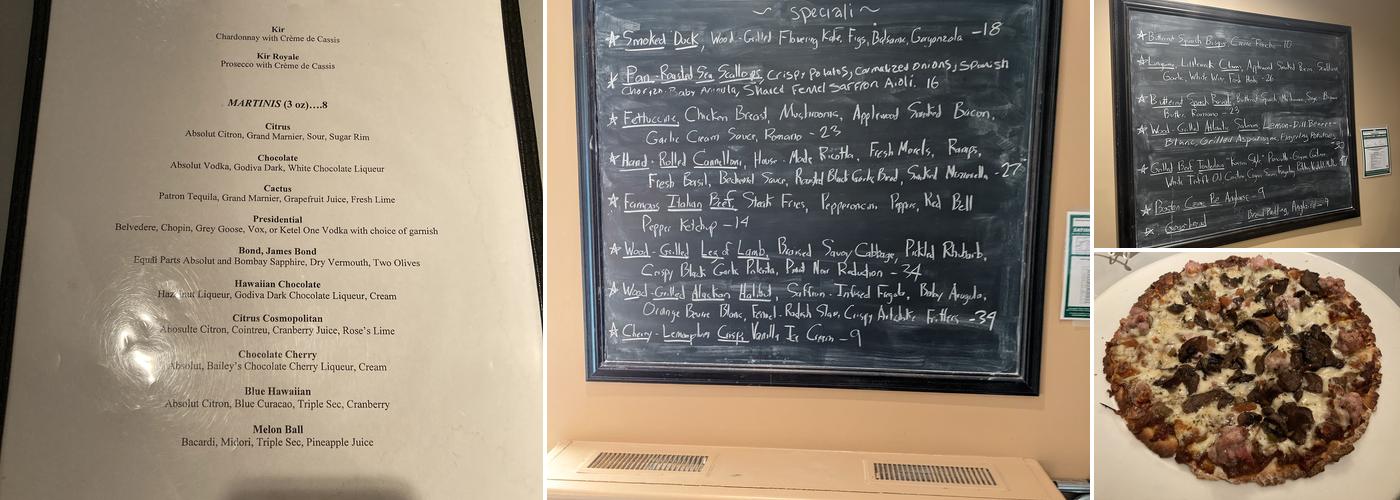 Kir
Chardonnay with Crème de Cassis
Kir Royale
Prosecco with Crème de Cassis
MARTINIS (3 oz)....8
Citrus
Absolut Citron, Grand Marnier, Sour, Sugar Rim
Chocolate
Absolut Vodka, Godiva Dark, White Chocolate Liqueur
Cactus
Patron Tequila, Grand Marnier, Grapefruit Juice, Fresh Lime
Presidential
Belvedere, Chopin, Grey Goose, Vox, or Ketel One Vodka with choice of garnish
Bond, James Bond
Equal Parts Absolut and Bombay Sapphire, Dry Vermouth, Two Olives
Hawaiian Chocolate
Hazelnut Liqueur, Godiva Dark Chocolate Liqueur, Cream
Citrus Cosmopolitan
Abosulte Citron, Cointreu, Cranberry Juice, Rose's Lime
Chocolate Cherry
Absolut, Bailey's Chocolate Cherry Liqueur, Cream
Blue Hawaiian
Absolut Citron, Blue Curacao, Triple Sec, Cranberry
Melon Ball
Bacardi, Midori, Triple Sec, Pineapple Juice
~ speciali ~
Smoked Duck, Wood-Grilled Flowering Kale, Figs, Balsamic, Gorgonzola -18
Pan-Roasted Sea Scallops, Crispy Potatos, Carmalized Onions, Spanish
Chorizo, Baby Arugula, Shaved Fennel Saffron Aioli. 16
Fettuccine, Chicken Breast, Mushrooms, Applewood Smoked Bacon,
Garlic Cream Sauce, Romano - 23
Hand-Rolled Cannelloni, House-Made Ricotta, Fresh Morels, Ramps,
Fresh Basil, Bechamel Sauce, Roasted Black Garlic Bread, Smoked Mozzarella -27
Famous Italian Beef, Steak Fries, Pepperoncini Peppers, Red Bell
Pepper Ketchup -14
Wood-Grilled Leg of Lamb, Braised Savoy Cabbage, Pickled Rhubarb,
Crispy Black Garlic Polenta, Pinot Noir Reduction - 34
Wood-Grilled Alaskan Halibut, Saffron-Infused Fregola, Baby Arugula,
Orange Beurre Blanc, Fennel-Radish Slaw, Crispy Artichoke Fritters -39
Cherry-Lemonplum Crisp, Vanilla Ice Cream - 9
Butternut Squash Bisque, Creme Fraiche - 10
Linguine, Littleneck Clams, Applewood Smoked Bacon,
Garlic, White Wine -26
Butternut Squash Ravioli, Butternut Squash, Sage, Brown
Butter, Romano - 23
Wood-Grilled Atlantic Salmon Lemon-Dill Beurre-
Blanc, Grilled Asparagus, Fingerling Potatoes
Grilled Beef Tenderloin
White Truffle Oil
Boston Creme Pie Anglaise - 9
Gingerbread Bread Pudding, Anglaise - 9